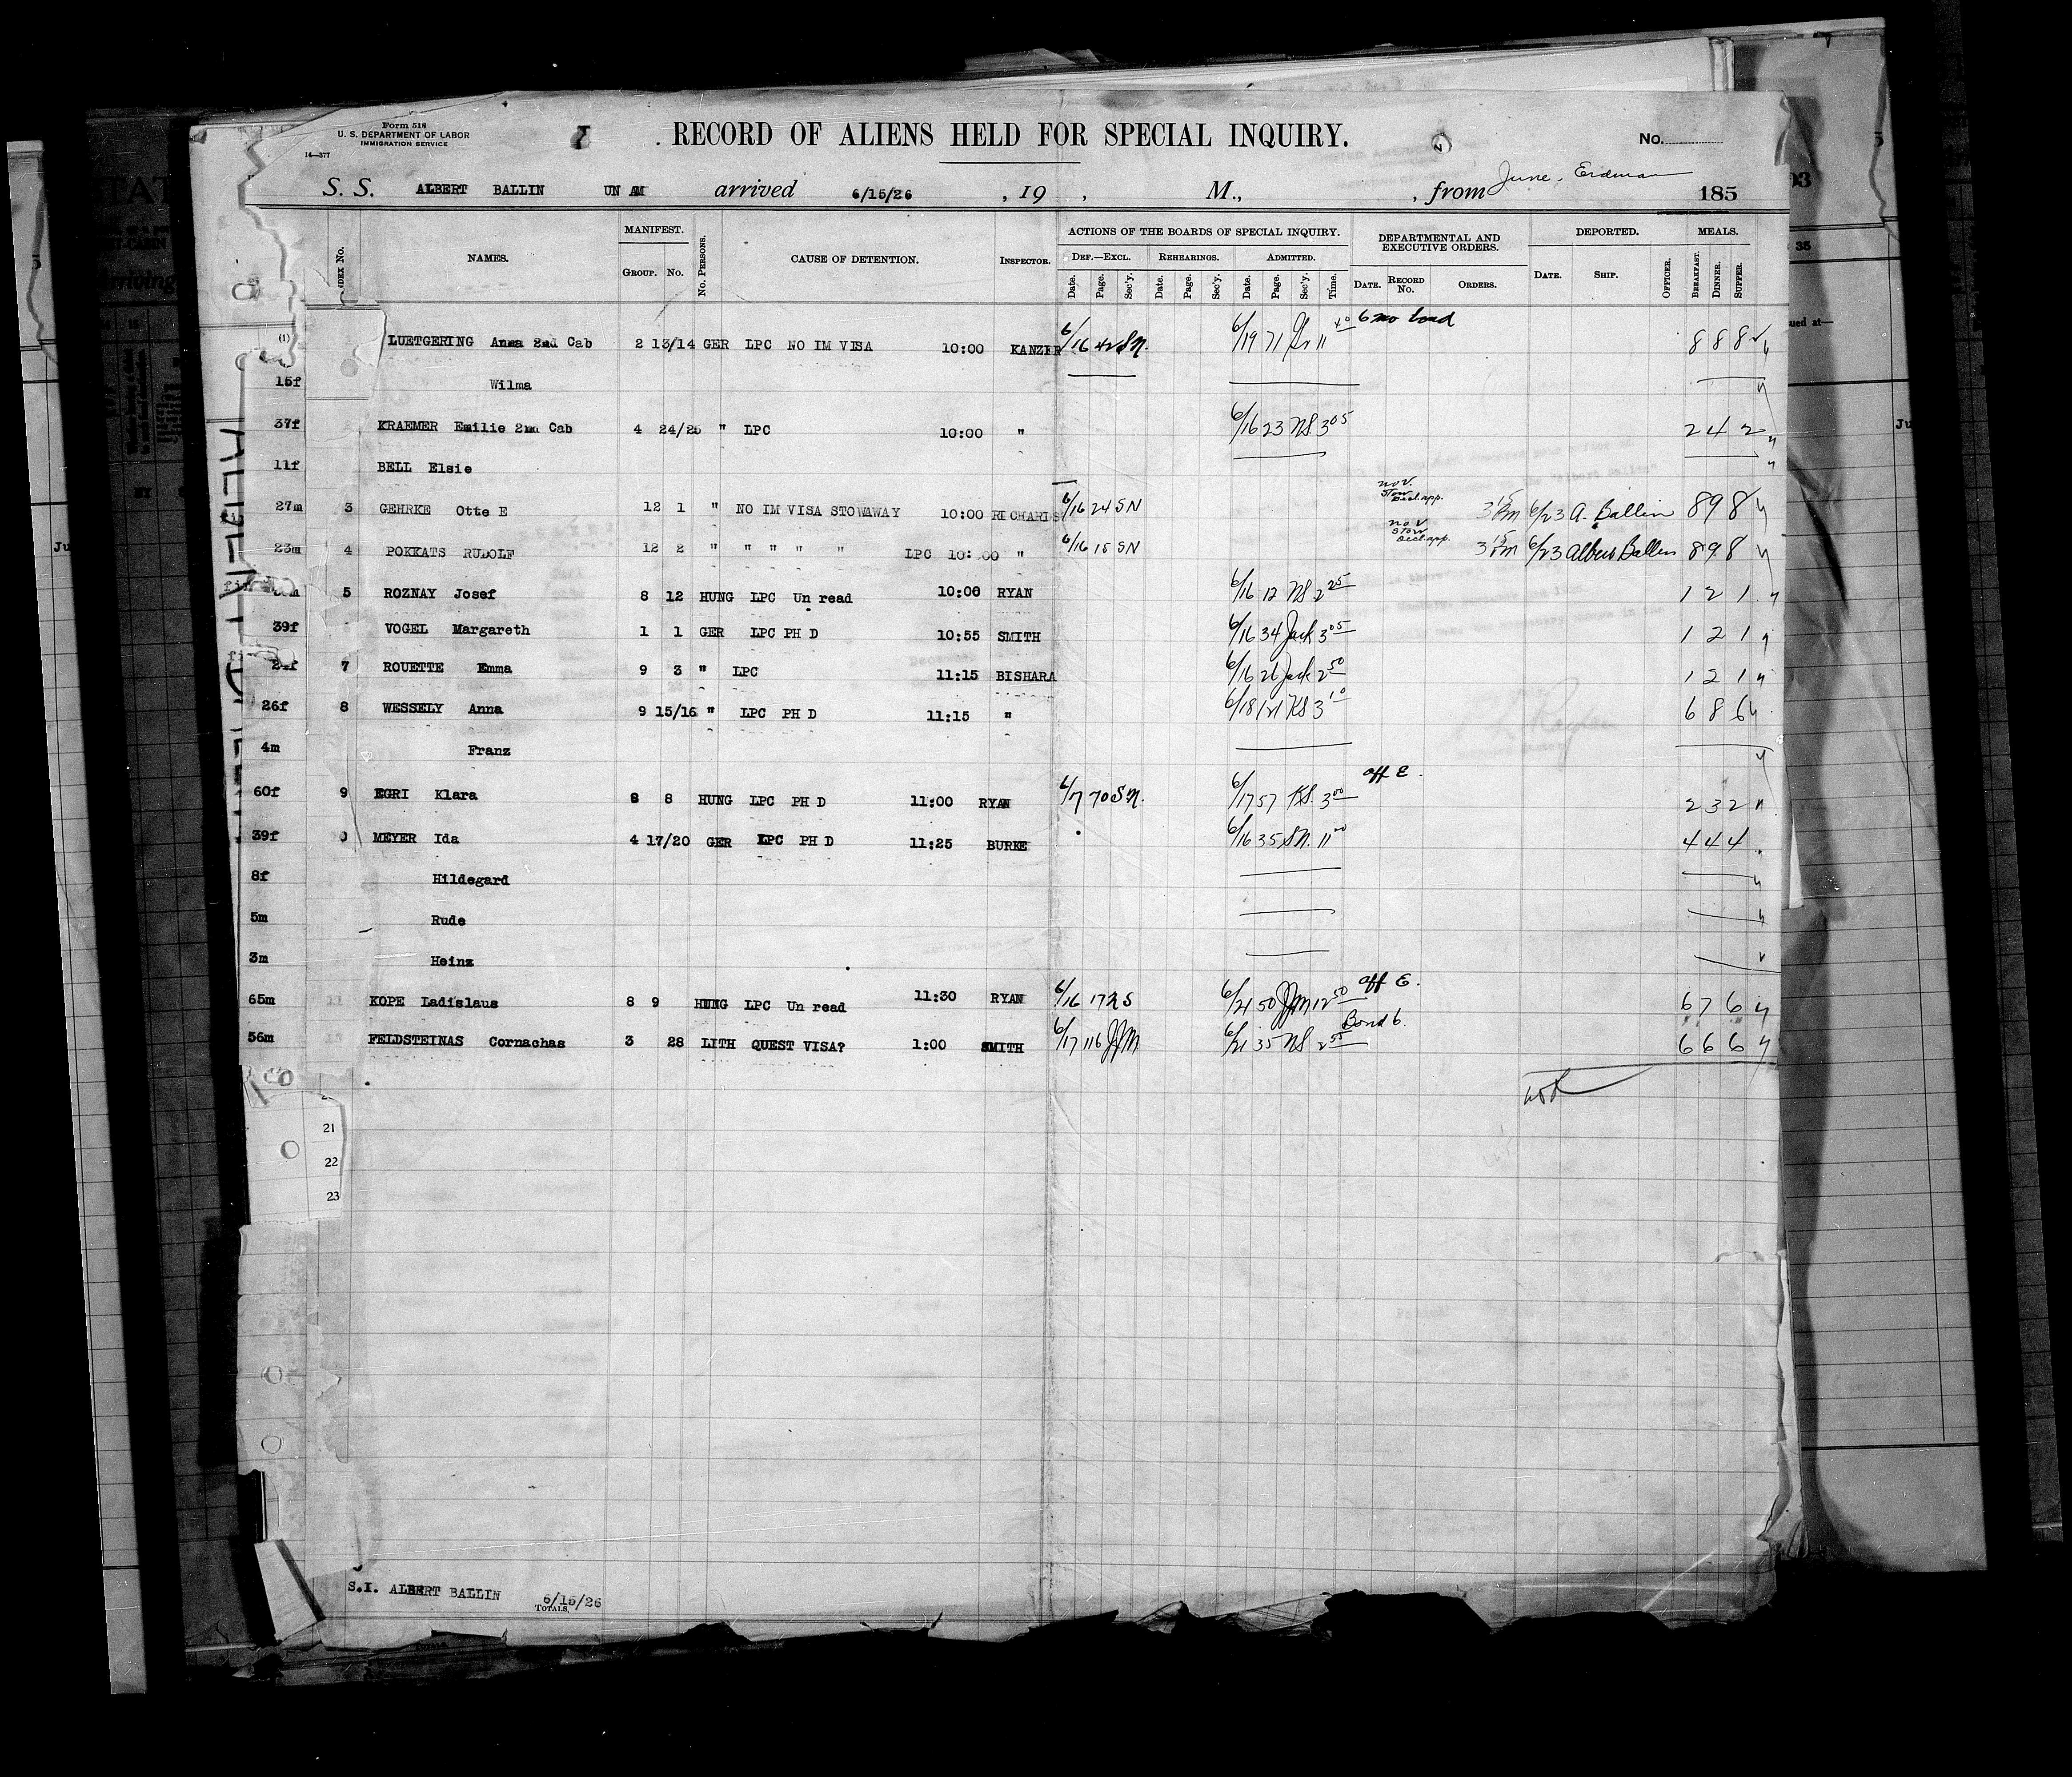 Form 518
U. S. DEPARTMENT OF LABOR
IMMIGRATION SERVICE
14—377
RECORD OF ALIENS HELD FOR SPECIAL INQUIRY.
No.
S. S. ALBERT BALLIN UN AM arrived 6/15/26, 19 , M., , from June. Erdman 185
INDEX No. NAMES. MANIFEST. GROUP. No. No. PERSONS. CAUSE OF DETENTION. INSPECTOR. ACTIONS OF THE BOARDS OF SPECIAL INQUIRY. DEPARTMENTAL AND EXECUTIVE ORDERS. DEPORTED. MEALS.
DEF.—EXCL. REHEARINGS. ADMITTED.
Date. Page. Sec'y. Date. Page. Sec'y. Date. Page. Sec'y. Time. DATE. RECORD No. ORDERS. DATE. SHIP. OFFICER. BREAKFAST. DINNER. SUPPER.
LUETGERING Anna 2nd Cab 2 13/14 GER LPC NO IM VISA 10:00 KANZER 6/16 42 SN. 6/19 71 11 40 8 8 8
15f Wilma
37f KRAEMER Emilie 2nd Cab 4 24/25 " LPC 10:00 " 6/16 23 NS 3 05 2 4 2
11f BELL Elsie
27m 3 GEHRKE Otte E 12 1 " NO IM VISA STOWAWAY 10:00 RICHARDS 6/16 24 SN no V. Stow Decl. app. 3 15 PM 6/23 A. Ballin 8 9 8
23m 4 POKKATS RUDOLF 12 2 " " " " " LPC 10:00 " 6/16 15 SN no V Stow Decl. app. 3 15 PM 6/23 Albert Ballin 8 9 8
5 ROZNAY Josef 8 12 HUNG LPC Un read 10:00 RYAN 6/16 12 NS 2 25 1 2 1
39f VOGEL Margareth 1 1 GER LPC PH D 10:55 SMITH 6/16 34 Jack 3 05 1 2 1
24f 7 ROUETTE Emma 9 3 " LPC 11:15 BISHARA 6/16 26 Jack 2 50 1 2 1
26f 8 WESSELY Anna 9 15/16 " LPC PH D 11:15 " 6/18 121 KS 3 10 6 8 6
4m Franz
60f 9 EGRI Klara 8 8 HUNG LPC PH D 11:00 RYAN 6/17 70 SN. 6/17 57 KS. 3 00 aff E. 2 3 2
39f 0 MEYER Ida 4 17/20 GER LPC PH D 11:25 BURKE 6/16 35 SN. 11 00 4 4 4
8f Hildegard
5m Rude
3m Heinz
65m 11 KOPE Ladislaus 8 9 HUNG LPC Un read 11:30 RYAN 6/16 17 RS 6/21 50 JJM 12 50 aff E. 6 7 6
56m FELDSTEINAS Cornachas 3 28 LITH QUEST VISA? 1:00 SMITH 6/17 116 JJM 6/21 35 NS 2 55 Bond 6. 6 6 6
21
22
23
S.I. ALBERT BALLIN 6/15/26
TOTALS,